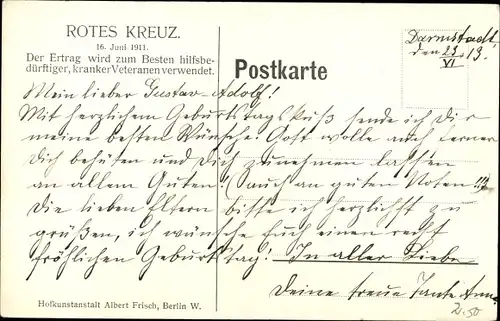 ROTES KREUZ.
16. Juni 1911.
Der Ertrag wird zum Besten hilfsbe-
dürftiger, kranker Veteranen verwendet.
Postkarte
Darmstadt
den 23. 13.
VI
Mein lieber Gustav-Adolf!
Mit herzlichem Geburtstagskuß sende ich Dir
meine besten Wünsche. Gott wolle auch ferner
Dich behüten und Dich zunehmen lassen
an allem Guten! (auch an guten Noten!!!)
Die lieben Eltern bitte ich herzlichst zu
grüßen, ich wünsche Euch einen recht
fröhlichen Geburtstag! In aller Liebe
Deine treue Tante Anna.
Hofkunstanstalt Albert Frisch, Berlin W.
2.50